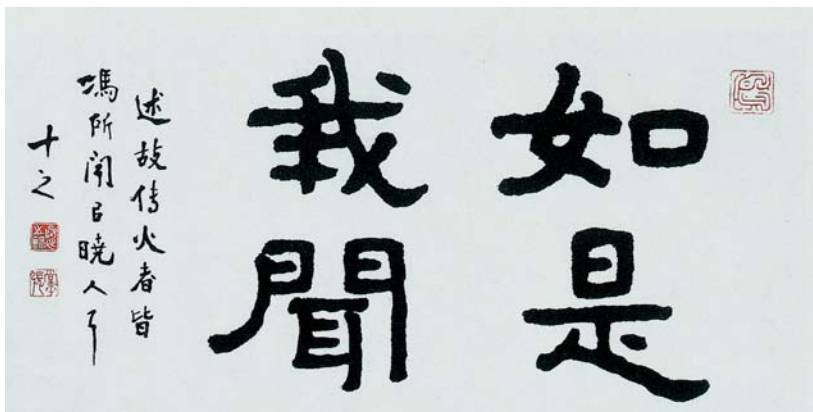 如是
我聞
述故傳火者皆
馮所聞㠯曉人耳
十之